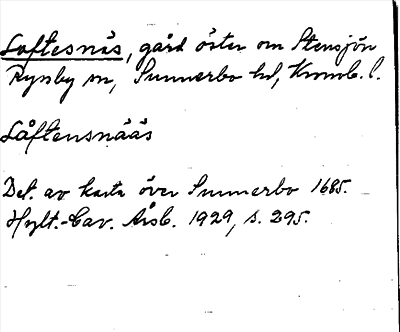 Loftesnäs, gård öster om Stensjön
Ryssby sn, Sunnerbo hd, Kronob. l.
Låftensnääs
Det. av karta över Sunnerbo 1685.
Hylt.-Cav. Årsb. 1929, s. 295.